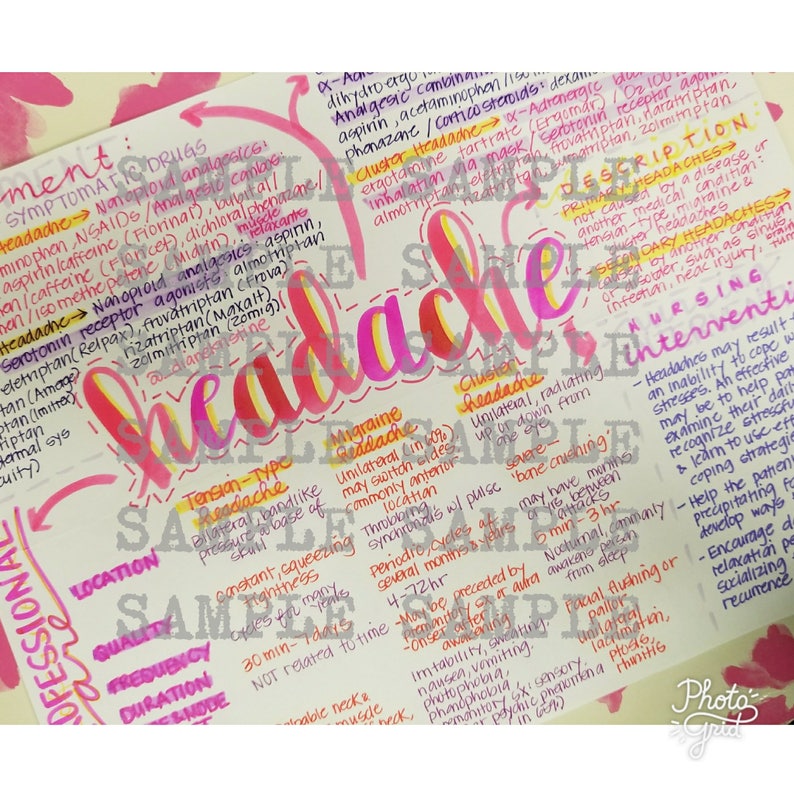 ment:
SYMPTOMATIC DRUGS
Headache→ Nonopioid analgesics:
minophen, NSAIDs/Analgesic combos:
aspirin/caffeine (Fiorinal), butalbital/
hen/caffeine (Fioricet), dichloralphenazone/
hen/isometheptene (Midrin), muscle
relaxants
Headache→ Nonopioid analgesics: aspirin,
Serotonin receptor agonists: almotriptan
eletriptan (Relpax), frovatriptan (Frova)
rizatriptan (Maxalt)
zolmitriptan (Zomig)
tan (Amerge
ptan (Imitrex
triptan
dermal sys
cuity)
@dianekristine
α-Adre
dihydroergo
Analgesic combination
aspirin, acetaminophen/isom
phenazone/corticosteroids: dexam
Cluster Headache→ α-Adrenergic bloc
ergotamine tartrate (Ergomar)/O2 100%
inhalation via mask/serotonin receptor agonis
almotriptan, eletriptan, frovatriptan, naratriptan,
rizatriptan, sumatriptan, zolmitriptan
DESCRIPTION
PRIMARY HEADACHES→
not caused by a disease or
another medical condition:
tension-type, migraine &
cluster headaches
SECONDARY HEADACHES:
caused by another condition
or disorder, such as sinus
infection, neck injury,
headache
NURSING
interventi
- Headaches may result f
an inability to cope w
stresses. An effective
may be to help pati
examine their daily
recognize stressful
& learn to use effe
coping strategie
- Help the patien
precipitating fa
develop ways
- Encourage d
relaxation pe
socializing
recurrence
OFESSIONAL
care
Tension-Type
headache
Migraine
headache
Cluster
headache
LOCATION
Bilateral, bandlike
pressure @ base of
skull
Unilateral (in 60%)
may switch sides,
commonly anterior
location
Unilateral, radiating
up or down from
one eye
QUALITY
Constant, squeezing
tightness
Throbbing,
synchronous w/ pulse
severe-
bone crushing
FREQUENCY
Cycles for many
years
Periodic, cycles of
several months & years
may have months
or yrs between
attacks
DURATION
30 min-7 days
4-72hr
5 min-3hr
NOT related to time
- May be preceded by
premonitory sx or aura
- Onset after
awakening
Nocturnal, commonly
awakens person
from sleep
palpable neck &
muscle
neck,
Irritability, sweating
nausea, vomiting,
photophobia,
phonophobia,
premonitory sx: sensory,
or psychic phenomena
Facial flushing or
pallor,
unilateral
lacrimation,
ptosis,
rhinitis
SAMPLE SAMPLE
SAMPLE SAMPLE
SAMPLE SAMPLE
SAMPLE SAMPLE
SAMPLE SAMPLE
SAMPLE SAMPLE
SAMPLE SAMPLE
Photo
Grid